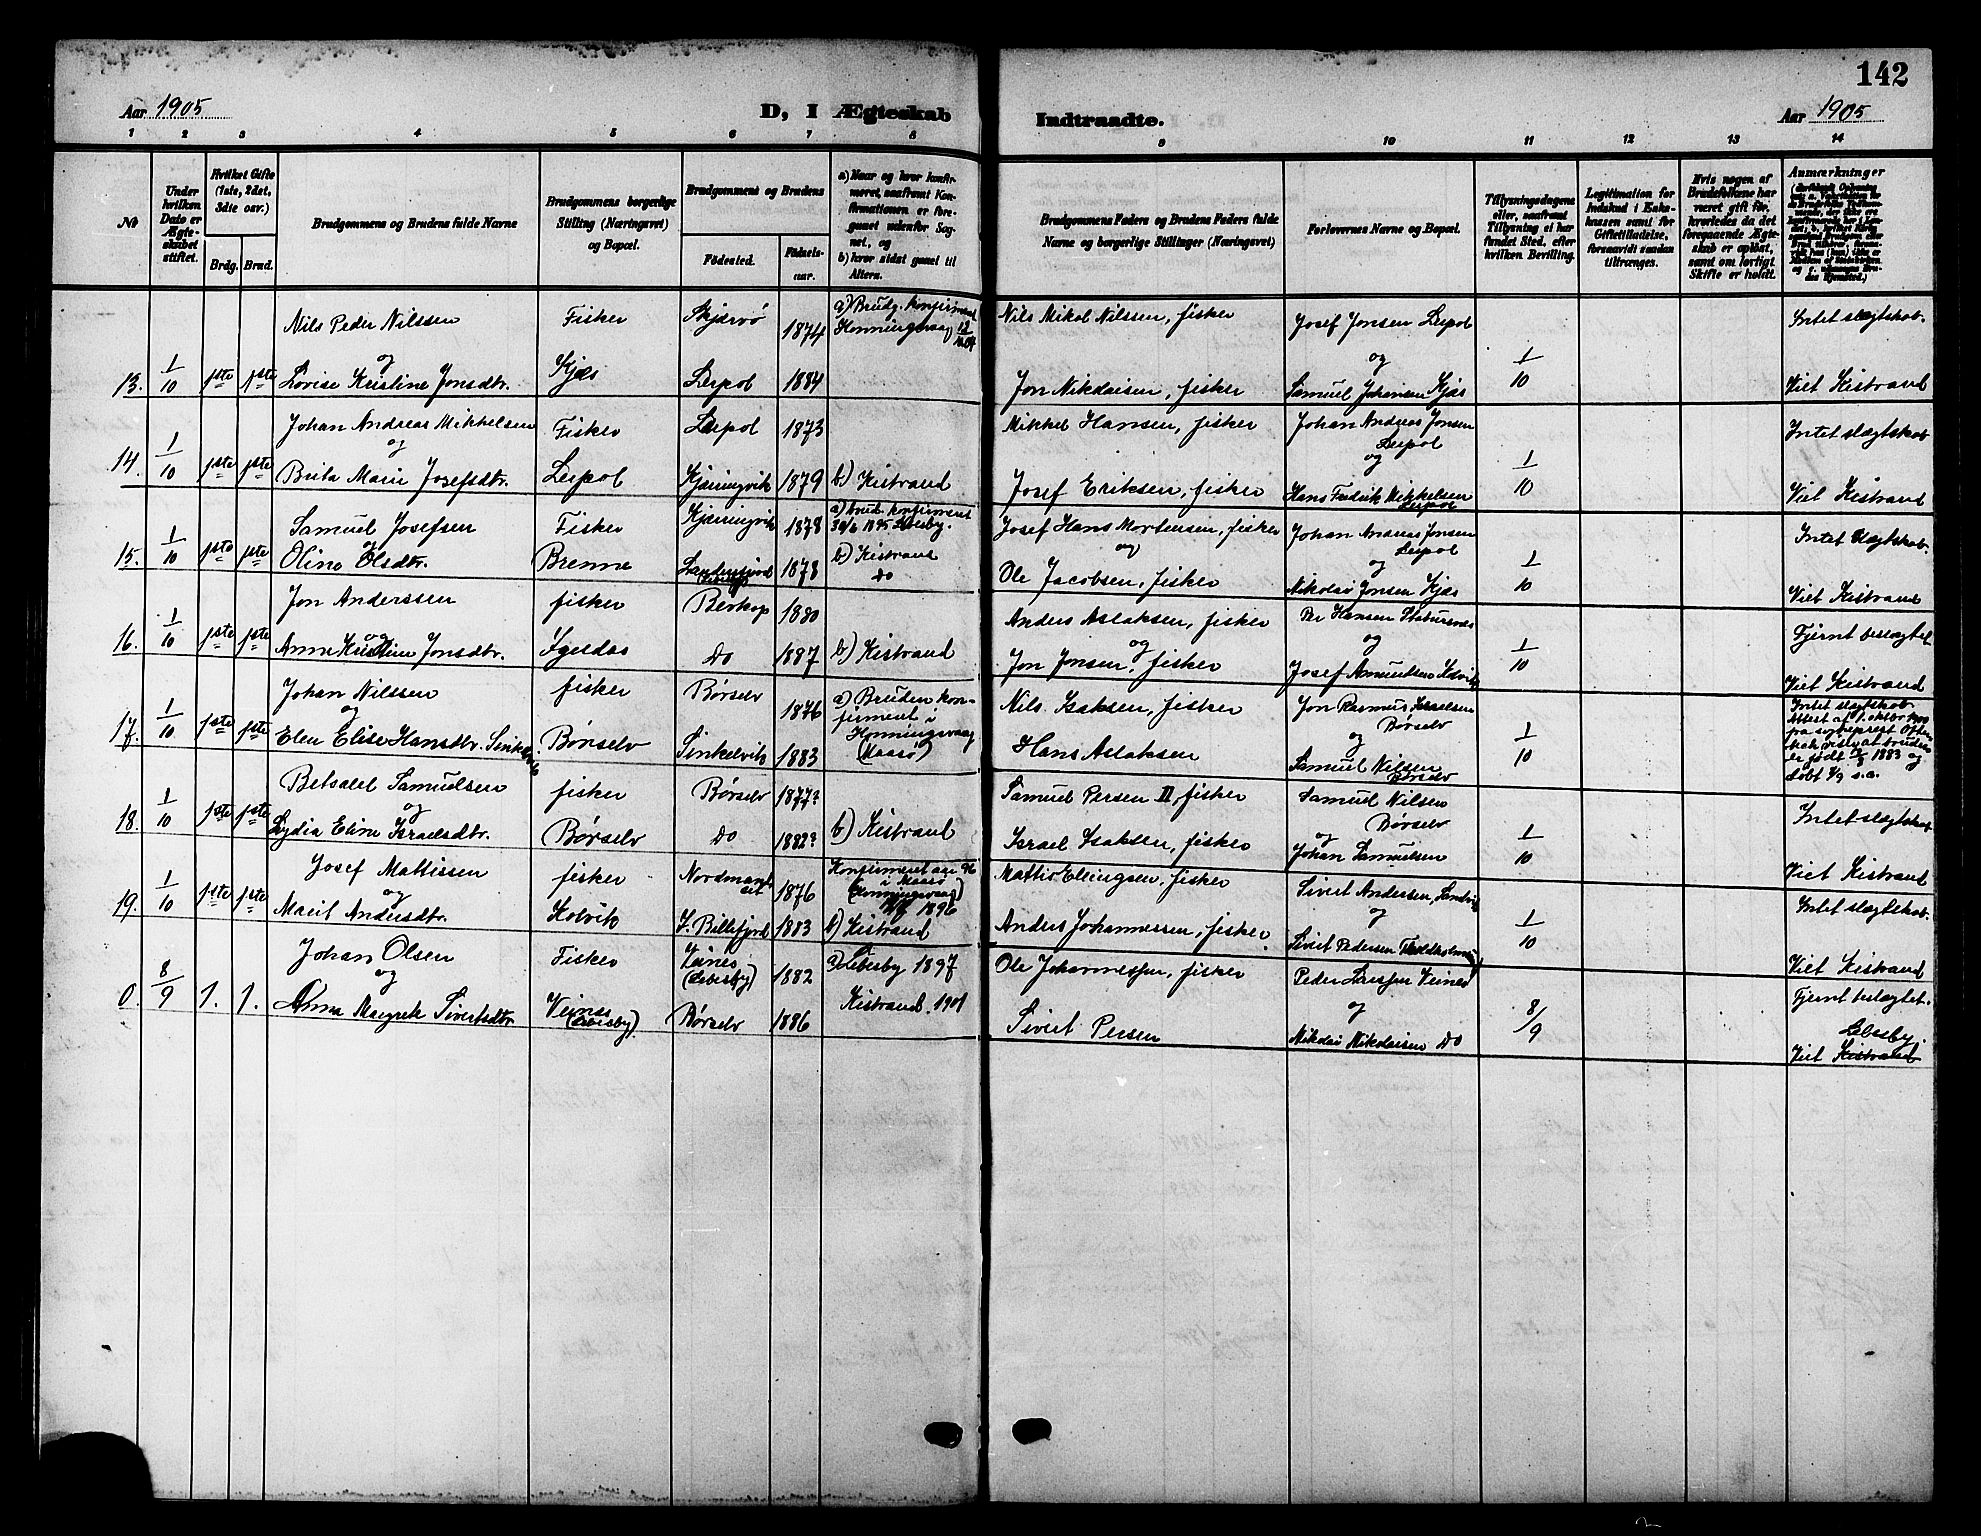 142
Aar 1905
D, I Ægteskab
Indtraadte.
Aar 1905
1 2 3 4 5 6 7 8 9 10 11 12 13 14
No
Under hvilken Dato er Ægteskabet stiftet.
Hvilket Gifte (1ste, 2det, 3die osv.)
Brdg. Brud.
Brudgommens og Brudens fulde Navne
Brudgommens borgerlige Stilling (Næringsvei) og Bopæl.
Brudgommens og Brudens
Fødested. Fødselsaar.
a) Naar og hvor konfirmeret, saafremt Konfirmationen er foregaaet udenfor Sognet, og
b) hvor sidst gaaet til Alters.
Brudgommens Faders og Brudens Faders fulde Navne og borgerlige Stillinger (Næringsvei)
Forlovernes Navne og Bopæl.
Tillysningsdagene eller, saafremt Tillysning ei har fundet Sted, efter hvilken Bevilling.
Legitimation for Indskud i Enkekassen samt for Giftetilladelse, forsaavidt saadan tiltrænges.
Hvis nogen af Brudefolkene har været gift før, hvorledes da det foregaaende Ægteskab er opløst, samt om lovligt Skifte er holdt.
Anmærkninger
13. 1/10 1ste 1ste
Nils Peder Nilssen
og
Lovise Kristine Jonsdtr.
Fisker
Kjæs
Skjærvø 1874
Leipol 1884
a) Brudg. konfirmeret
Honningsvaag
Nils Mikal Nilssen, fisker
Jon Nikolaisen, fisker
Josef Jonsen Leipol
og
Samuel Johansen Kjæs
1/10
Intet slægtskab.
Viet Kistrand
14. 1/10 1ste 1ste
Johan Andreas Mikkelsen
og
Brita Marie Josefsdtr.
Fisker
Leipol
Leipol 1873
Kjæringvik 1879
b) Kistrand
Mikkel Hansen, fisker
Josef Eriksen, fisker
Johan Andreas Jonsen
Leipol
og
Hans Fredrik Mikkelsen
Leipol
1/10
Intet slægtskab
Viet Kistrand
15. 1/10 1ste 1ste
Samuel Josefsen
og
Oline Olsdtr.
Fisker
Brenne
Kjæringvik 1878
1878
a) brud. konfirmeret
30/6 1895 Lebesby.
b) Kistrand
Do
Josef Hans Mortensen, fisker
og
Ole Jacobsen, fisker
Johan Andreas Jonsen
Leipol
og
Nikolai Jonsen Kjæs
1/10
Intet slægtskab.
Viet Kistrand
16. 1/10 1ste 1ste
Jon Anderssen
og
Anne Kristine Jonsdtr.
fisker
Igeldas
Bevkop 1880
Do 1887
b) Kistrand
Anders Aslaksen, fisker
og
Jon Jonsen, fisker
Per Hansen Stabursnes
og
Josef Amundsen
1/10
Fjernt beslægtet
Viet Kistrand
17. 1/10 1ste 1ste
Johan Nilssen
og
Elen Elise Hansdtr. Sinkelvik
fisker
Børselv
Børselv 1876
Sinkelvik 1883
a) Bruden konfirmert i
Honningsvaag
(Maasø)
Nils Isaksen, fisker
Hans Aslaksen
Jon Rasmus Israelsen
Børselv
og
Samuel Nilsen
Børselv
1/10
Intet slægtskab.
Attest af 1. oktbr.
fra sogneprest
at bruden
er født 1883 og
døbt 4/9 s.a.
18. 1/10 1ste 1ste
Betsalel Samuelsen
og
Lydia Eline Israelsdtr.
fisker
Børselv
Børselv 1877?
Do 1882?
b) Kistrand
Samuel Persen II, fisker
Israel Isaksen, fisker
Samuel Nilsen
Børselv
og
Johan Samuelsen
1/10
Intet slægtskab
Viet Kistrand
19. 1/10 1ste 1ste
Josef Mattissen
og
Marit Andersdtr.
fisker
Kolvik
Nordmanset 1876
I. Billefjord 1883
Konfirmeret aar 96
i Maasø
(Honningsvaag)
1896
b) Kistrand
Mattis Ellingsen, fisker
Anders Johannessen, fisker.
Sivert Andersen, Sandvik
og
Sivert Pedersen
1/10
Intet slægtskab.
Viet Kistrand
0. 8/9 1. 1.
Johan Olsen
og
Anna Margrete Sivertsdtr
Fisker
Veines
(Lebesby).
Veines
(Lebesby) 1882
Børselv 1886
Lebesby 1897
Kistrand 1901
Ole Johannessen, fisker
Sivert Persen
Peder Larssen Veines
og
Nikolai Nikolaisen Do
8/9
Fjernt beslægtet.
Lebesby.
Viet Kistrand